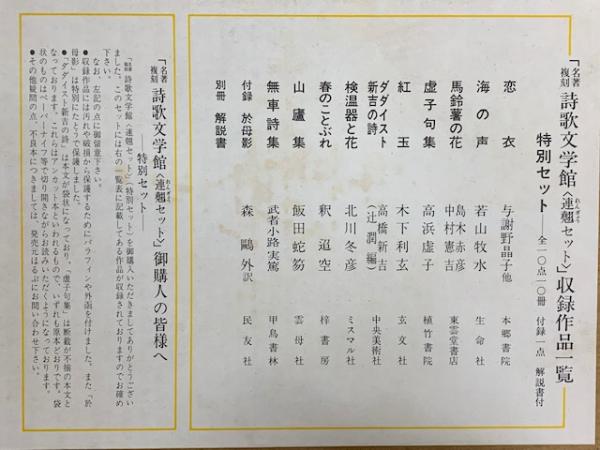 「名著複刻 詩歌文学館〈連翹セット〉」収録作品一覧
れんぎよう
特別セット―― 全一〇点一〇冊 付録一点 解説書付
恋衣 与謝野晶子他 本郷書院
海の声 若山牧水 生命社
馬鈴薯の花 島木赤彦 中村憲吉 東雲堂書店
虚子句集 高浜虚子 植竹書院
紅玉 木下利玄 玄文社
ダダイスト新吉の詩 高橋新吉(辻潤編) 中央美術社
検温器と花 北川冬彦 ミスマル社
春のことぶれ 釈迢空 梓書房
山廬集 飯田蛇笏 雲母社
無車詩集 武者小路実篤 甲鳥書林
付録 於母影 森鷗外訳 民友社
別冊 解説書
「名著複刻 詩歌文学館〈連翹セット〉」御購入の皆様へ
れんぎよう
――特別セット――
「名著複刻 詩歌文学館〈連翹セット〉」(特別セット)を御購入いただきましてありがとうござい
ました。このセットには右の一覧表に記載してある作品が収録されておりますのでお確め
下さい。
なお、左記の点に御留意下さい。
●収録作品には汚れや破損から保護するためにパラフィンや外函を付けました。また「於
母影」は特別にたとうで保護しました。
●「ダダイスト新吉の詩」は本文が袋状になっており、「虚子句集」は断裁が不揃の本文と
なっております。これらはアンカット本といわれるもので、いずれも原本どおりです。袋
状のものはペーパーナイフ等で切り開きながらお読みいただくようになっております。
●その他疑問の点、不良本につきましては、発売元ほるぷにお問い合わせ下さい。